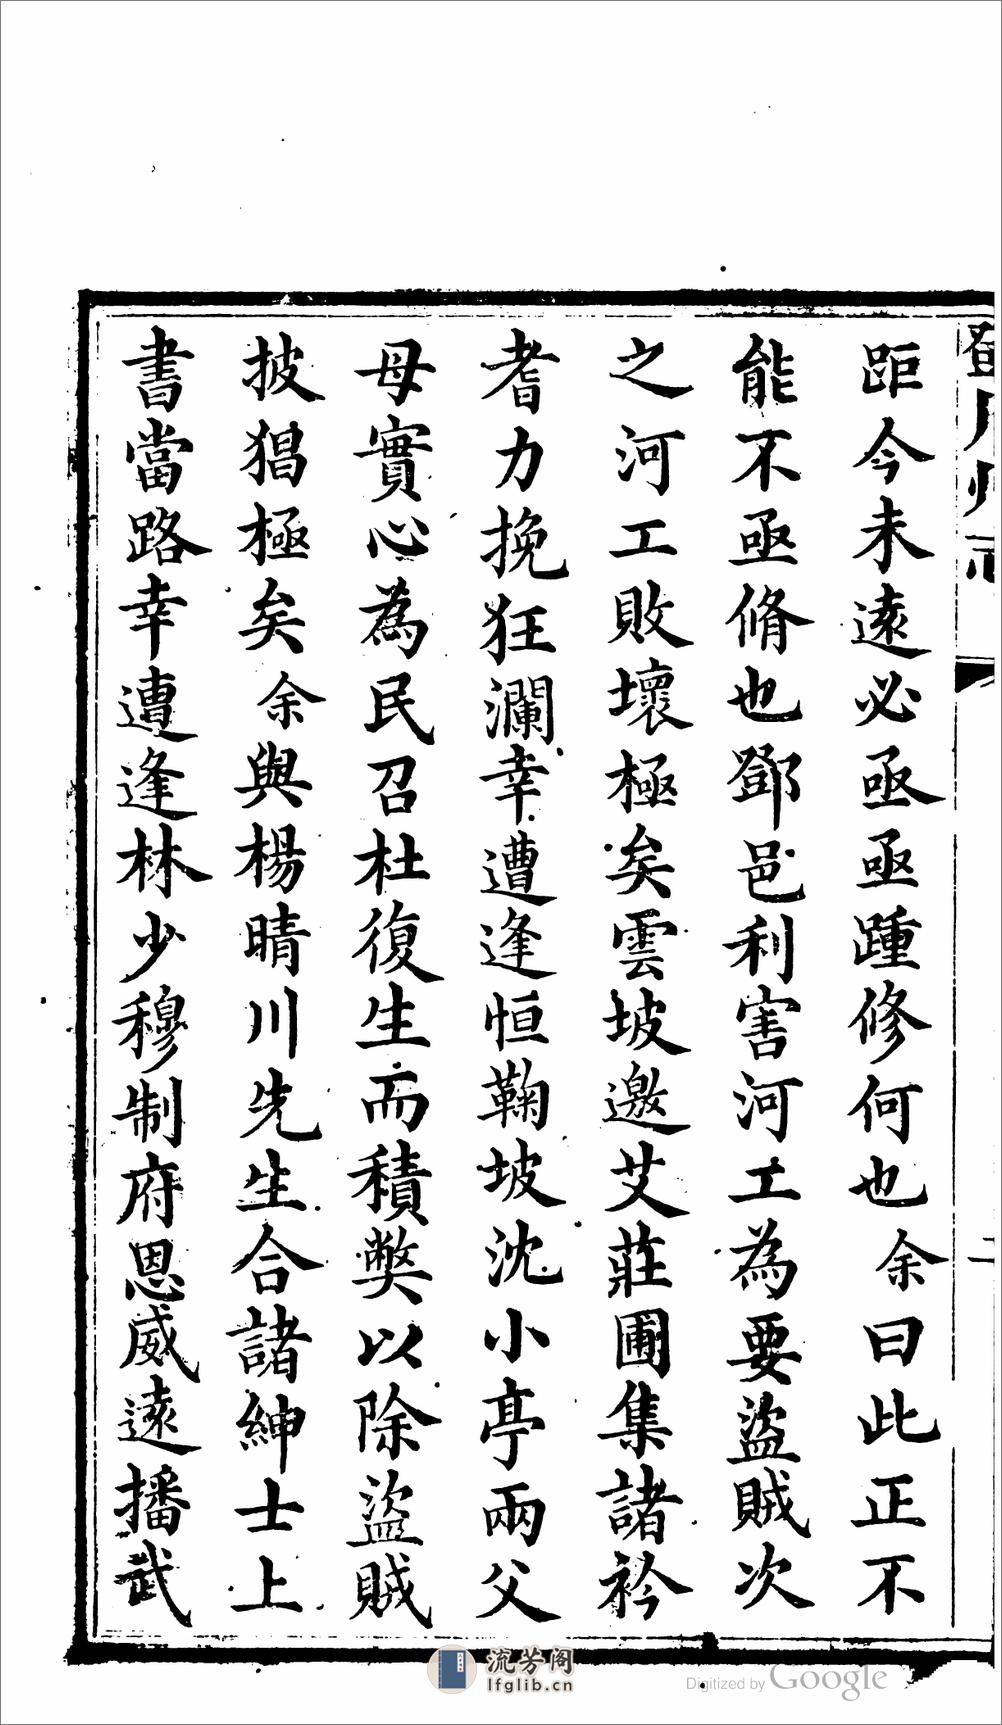 距今未遠必亟亟踵修何也余曰此正不
能不亟脩也鄧邑利害河工為要盜賊次
之河工敗壞極矣雲坡邀艾莊圃集諸衿
耆力挽狂瀾幸遭逢恒鞠坡沈小亭兩父
母實心為民召杜復生而積獘以除盜賊
披猖極矣余與楊晴川先生合諸紳士上
書當路幸遭逢林少穆制府恩威遠播武
流芳阁
lfglib.cn
Digitized by Google